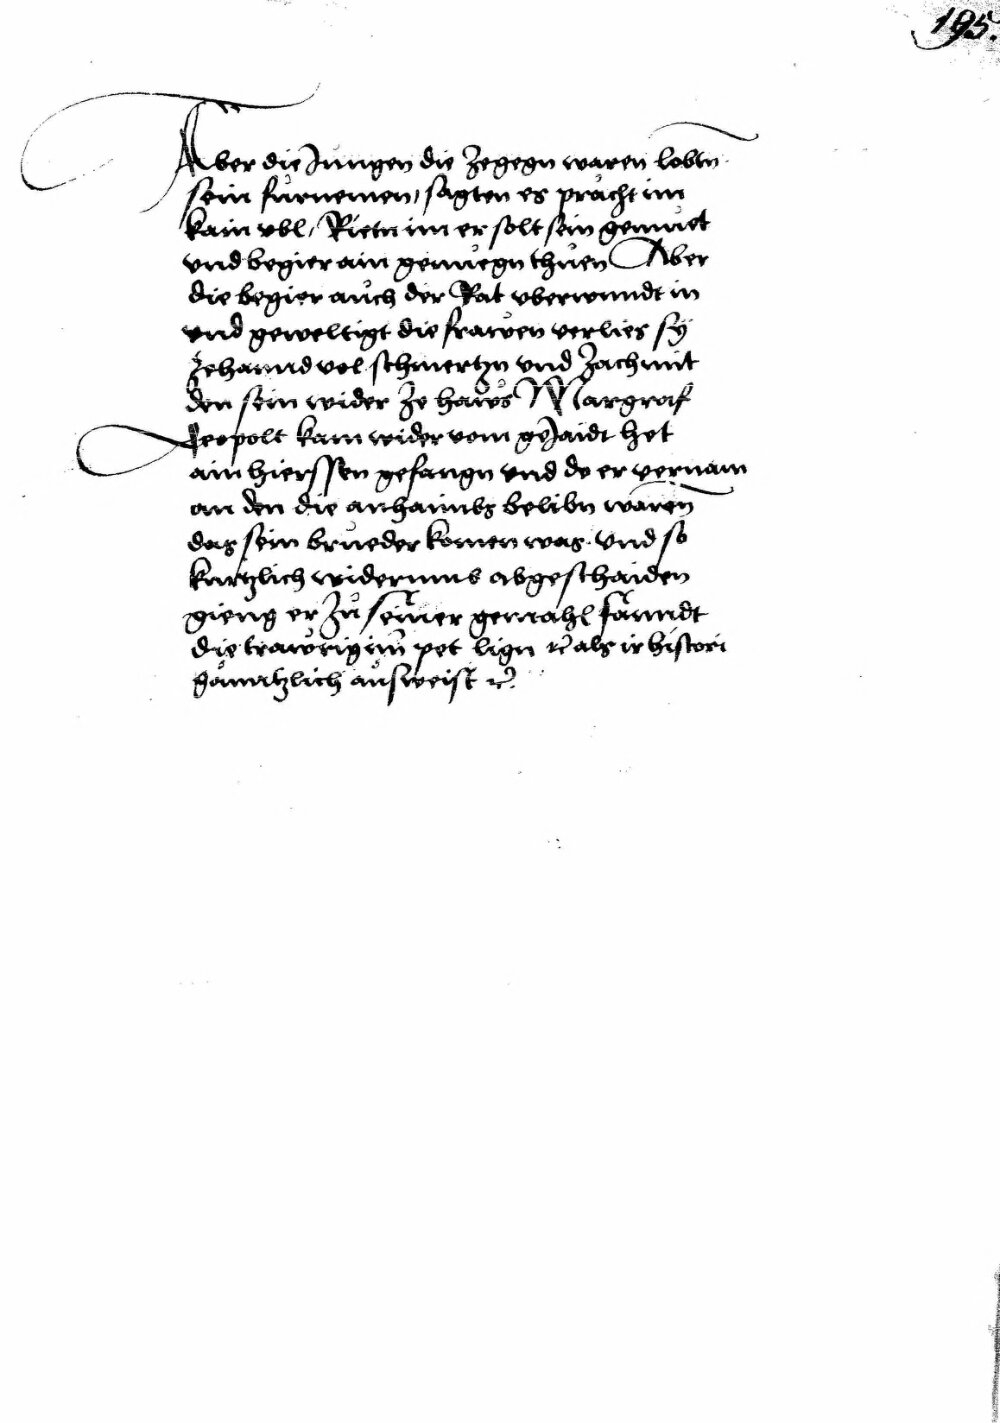 195.
Aber die Jungen die Zegegn waren lobtn
sein fürnemen, sagten es prächt im
kain vbl, Rietn im er solt sein gemuet
vnd begier ain genuegn thuen Aber
die begier auch der Rat vberwundt in
vnd geweltigt die frawen verlies sy
Zehannd vol schmertzn vnd Zach mit
den sein wider Ze haws Margraf
Leopolt kam wider vom geJaidt het
ain hierssen gefangn vnd do er vernam
an den die anhaimbs belibn waren
das sein brueder komen was vnd so
kurtzlich widerumb abgeschaiden
gieng er Zu seiner gemahl fanndt
die trawrig im pet lign ꝛc als ir histori
gänntzlich ausweist ꝛc.